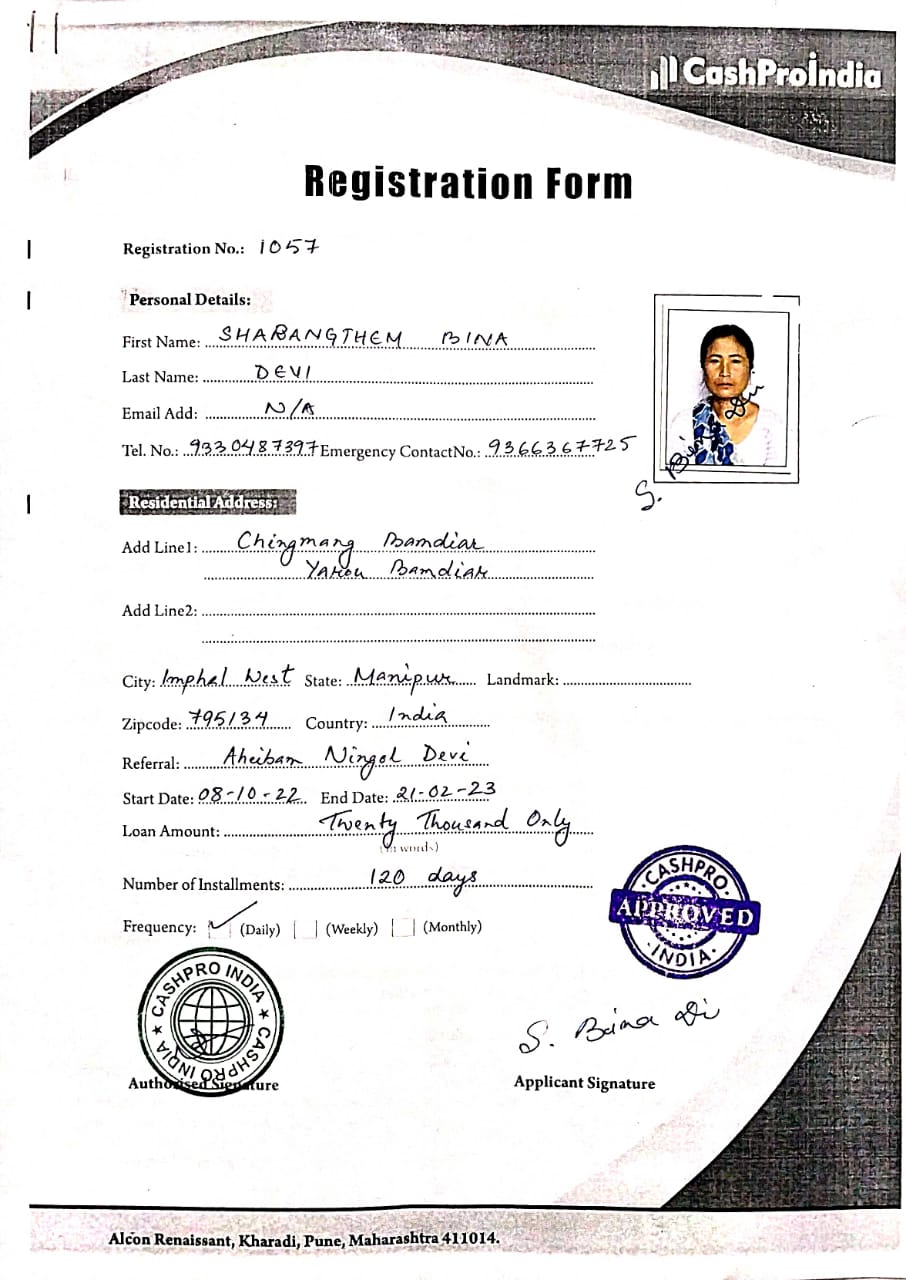 CashProIndia
Registration Form
Registration No.: 1057
Personal Details:
First Name: SHARANGTHEM BINA
Last Name: DEVI
Email Add: N/A
Tel. No.: 9330487397 Emergency ContactNo.: 9366367725
S. Bina Di
Residential Address:
Add Line1: Chingmang Bamdiar
Yarou Bamdiar
Add Line2:
City: Imphal West State: Manipur Landmark:
Zipcode: 795134 Country: India
Referral: Aheibam Ningol Devi
Start Date: 08-10-22 End Date: 21-02-23
Loan Amount: Twenty Thousand Only
(In words)
Number of Installments: 120 days
Frequency: (Daily) (Weekly) (Monthly)
CASHPRO
APPROVED
INDIA
CASHPRO INDIA ★ CASHPRO INDIA ★
S. Bina Di
Authorised Signature Applicant Signature
Alcon Renaissant, Kharadi, Pune, Maharashtra 411014.